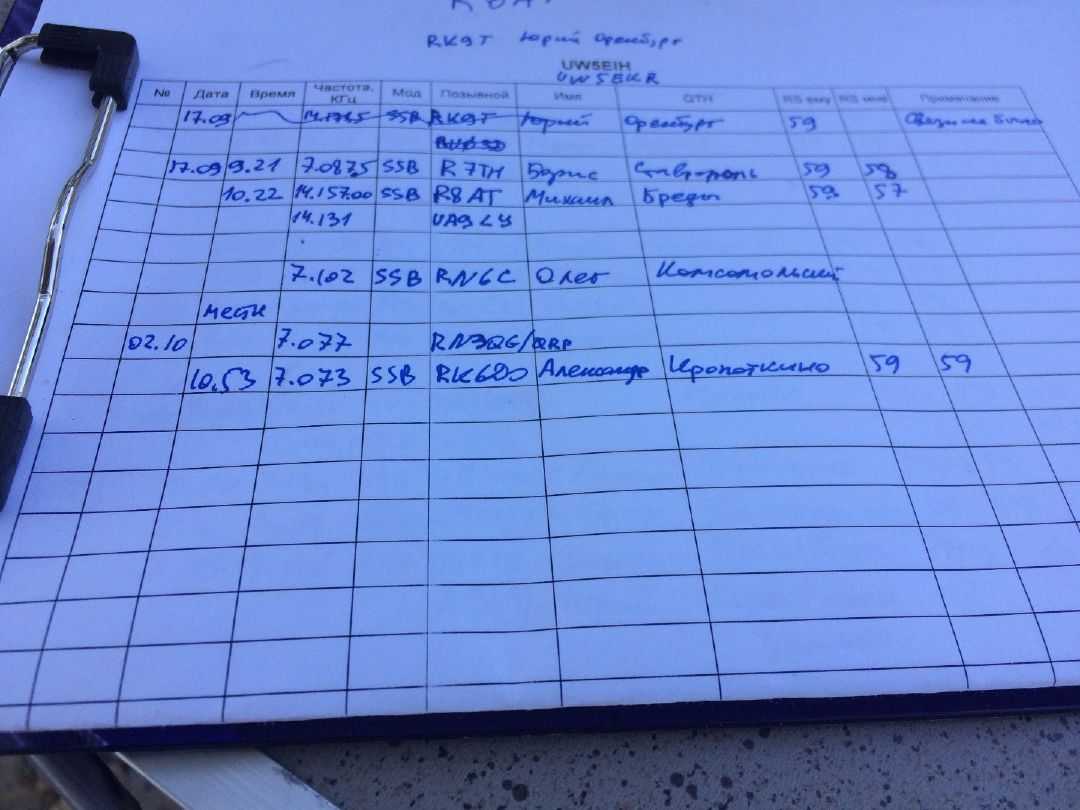 RK9T Юрий Оренбург
UW5EIH
UW5EKR
№ Дата Время Частота, КГц Мод Позывной Имя QTH RS ему RS мне Примечание
17.09 SSB RK9T Юрий Оренбург 59
17.09 9.21 7.0875 SSB R7TH Борис Ставрополь 59 59
10.22 14.157.00 SSB R8AT Михаил Бреды 59 57
14.131 UA9LY
7.102 SSB RN6C Олег Комсомольский
местн
02.10 7.077 RN3QG/QRP
10.53 7.073 SSB Александр Кропоткино 59 59